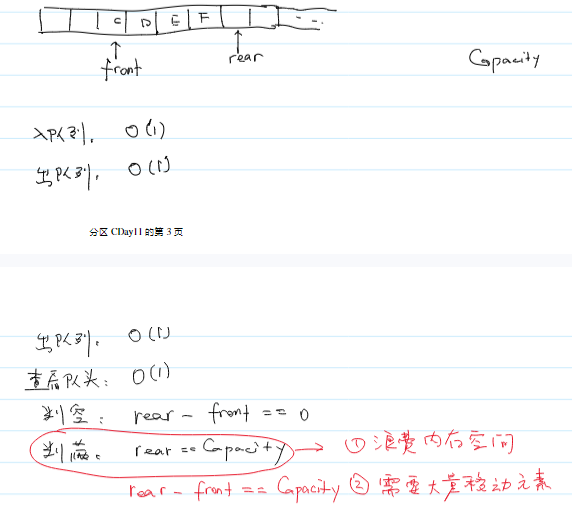 C D E F ...
front rear
Capacity
入队列. O(1)
出队列. O(1)
分区 CDay11 的第 3 页
出队列. O(1)
查看队头: O(1)
判空: rear - front == 0
判满: rear == Capacity → ① 浪费内存空间
rear - front == Capacity ② 需要大量移动元素